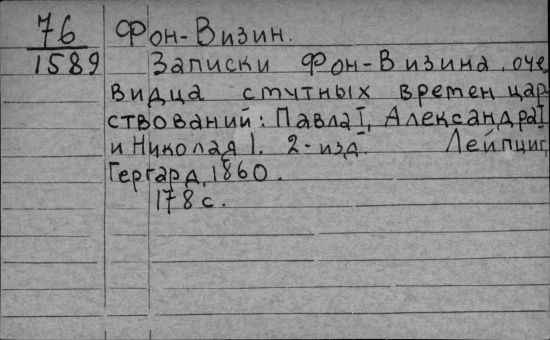 76
1589
Фон-Визин.
Записки Фон-Визина, оче
видца смутных времен цар
ствований: Павла I, Александра I
и Николая I. 2-изд. Лейпциг,
Гергард, 1860.
178 с.